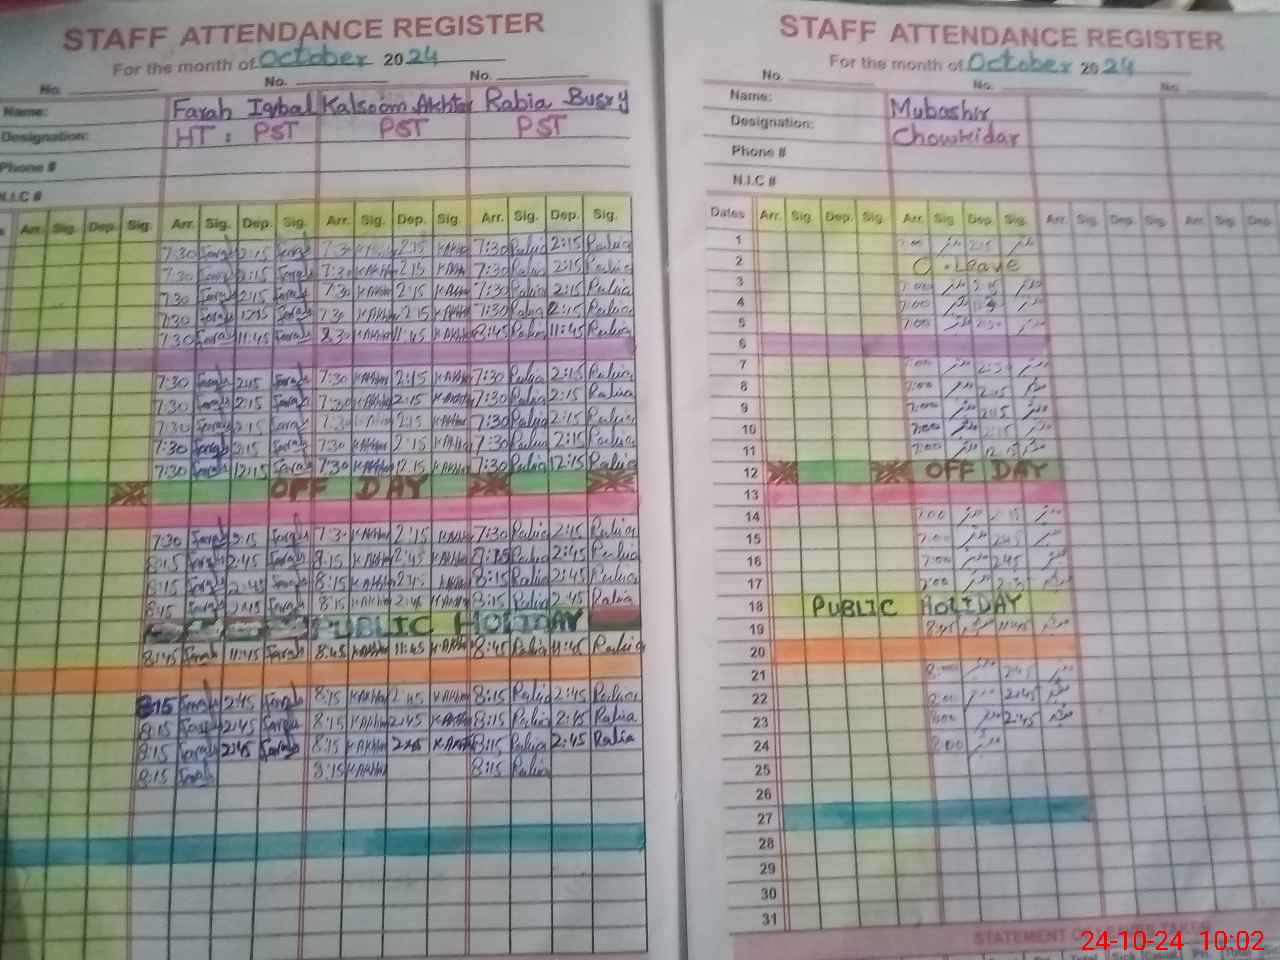 STAFF ATTENDANCE REGISTER
For the month of October 2024
No. No. No.
Name: Farah Iqbal Kalsoom Akhtar Rabia Busry
Designation: HT : PST PST PST
Phone #
N.I.C #
Arr. Sig. Dep. Sig. Arr. Sig. Dep. Sig. Arr. Sig. Dep. Sig. Arr. Sig. Dep. Sig.
7:30 Farah 2:15 Farah 7:30 K.Akhtar 2:15 K.Akhtar 7:30 Rabia 2:15 Rabia
7:30 Farah 2:15 Farah 7:30 K.Akhtar 2:15 K.Akhtar 7:30 Rabia 2:15 Rabia
7:30 Farah 2:15 Farah 7:30 K.Akhtar 2:15 K.Akhtar 7:30 Rabia 2:15 Rabia
7:30 Farah 7:30 K.Akhtar 2:15 K.Akhtar 7:30 Rabia 2:15 Rabia
7:30 Farah 11:45 Farah K.Akhtar 11:45 K.Akhtar 8:45 Rabia 11:45 Rabia
7:30 Farah 2:15 Farah 7:30 K.Akhtar 2:15 K.Akhtar 7:30 Rabia 2:15 Rabia
7:30 Farah 2:15 Farah 7:30 K.Akhtar 2:15 K.Akhtar 7:30 Rabia 2:15 Rabia
7:30 Farah 2:15 Farah 7:30 K.Akhtar 2:15 K.Akhtar 7:30 Rabia 2:15 Rabia
7:30 Farah 2:15 Farah 7:30 K.Akhtar 2:15 K.Akhtar 7:30 Rabia 2:15 Rabia
7:30 Farah 12:15 Farah 7:30 K.Akhtar 12:15 K.Akhtar 7:30 Rabia 12:15 Rabia
OFF DAY
7:30 Farah 2:15 Farah 7:30 K.Akhtar 2:15 K.Akhtar 7:30 Rabia 2:15 Rabia
8:15 Farah 2:45 Farah 8:15 K.Akhtar 2:45 K.Akhtar 8:15 Rabia 2:45 Rabia
8:15 Farah 2:45 Farah 8:15 K.Akhtar 2:45 K.Akhtar 8:15 Rabia 2:45 Rabia
8:15 Farah Farah 8:15 K.Akhtar 2:45 K.Akhtar 8:15 Rabia 2:45 Rabia
PUBLIC HOLIDAY
8:45 Farah 11:45 Farah 8:45 K.Akhtar 11:45 K.Akhtar 8:45 Rabia 11:45 Rabia
8:15 Farah 2:45 Farah 8:15 K.Akhtar 2:45 K.Akhtar 8:15 Rabia 2:45 Rabia
8:15 Farah 2:45 Farah 8:15 K.Akhtar 2:45 K.Akhtar 8:15 Rabia 2:45 Rabia
8:15 Farah 2:45 Farah 8:15 K.Akhtar 2:45 K.Akhtar 8:15 Rabia 2:45 Rabia
8:15 Farah 8:15 K.Akhtar 8:15 Rabia
STAFF ATTENDANCE REGISTER
For the month of October 2024
No. No. No.
Name: Mubashir
Designation: Chowkidar
Phone #
N.I.C #
Dates Arr. Sig. Dep. Sig. Arr. Sig. Dep. Sig. Arr. Sig. Dep. Sig. Arr. Sig. Dep.
1 7:00 2:15
2 C.Leave
3 7:00 2:15
4 7:00
5 7:00
6
7 7:00
8 7:00 2:15
9 7:00 2:15
10 7:00 2:15
11 7:00 12:15
12 OFF DAY
13
14 7:00 2:15
15 7:00 2:45
16 7:00 2:45
17 7:00
18 PUBLIC HOLIDAY
19 8:45 11:45
20
21 8:00 2:45
22 8:00 2:45
23 8:00 2:45
24 8:00
25
26
27
28
29
30
31
STATEMENT OF LEAVE TAKEN
24-10-24 10:02